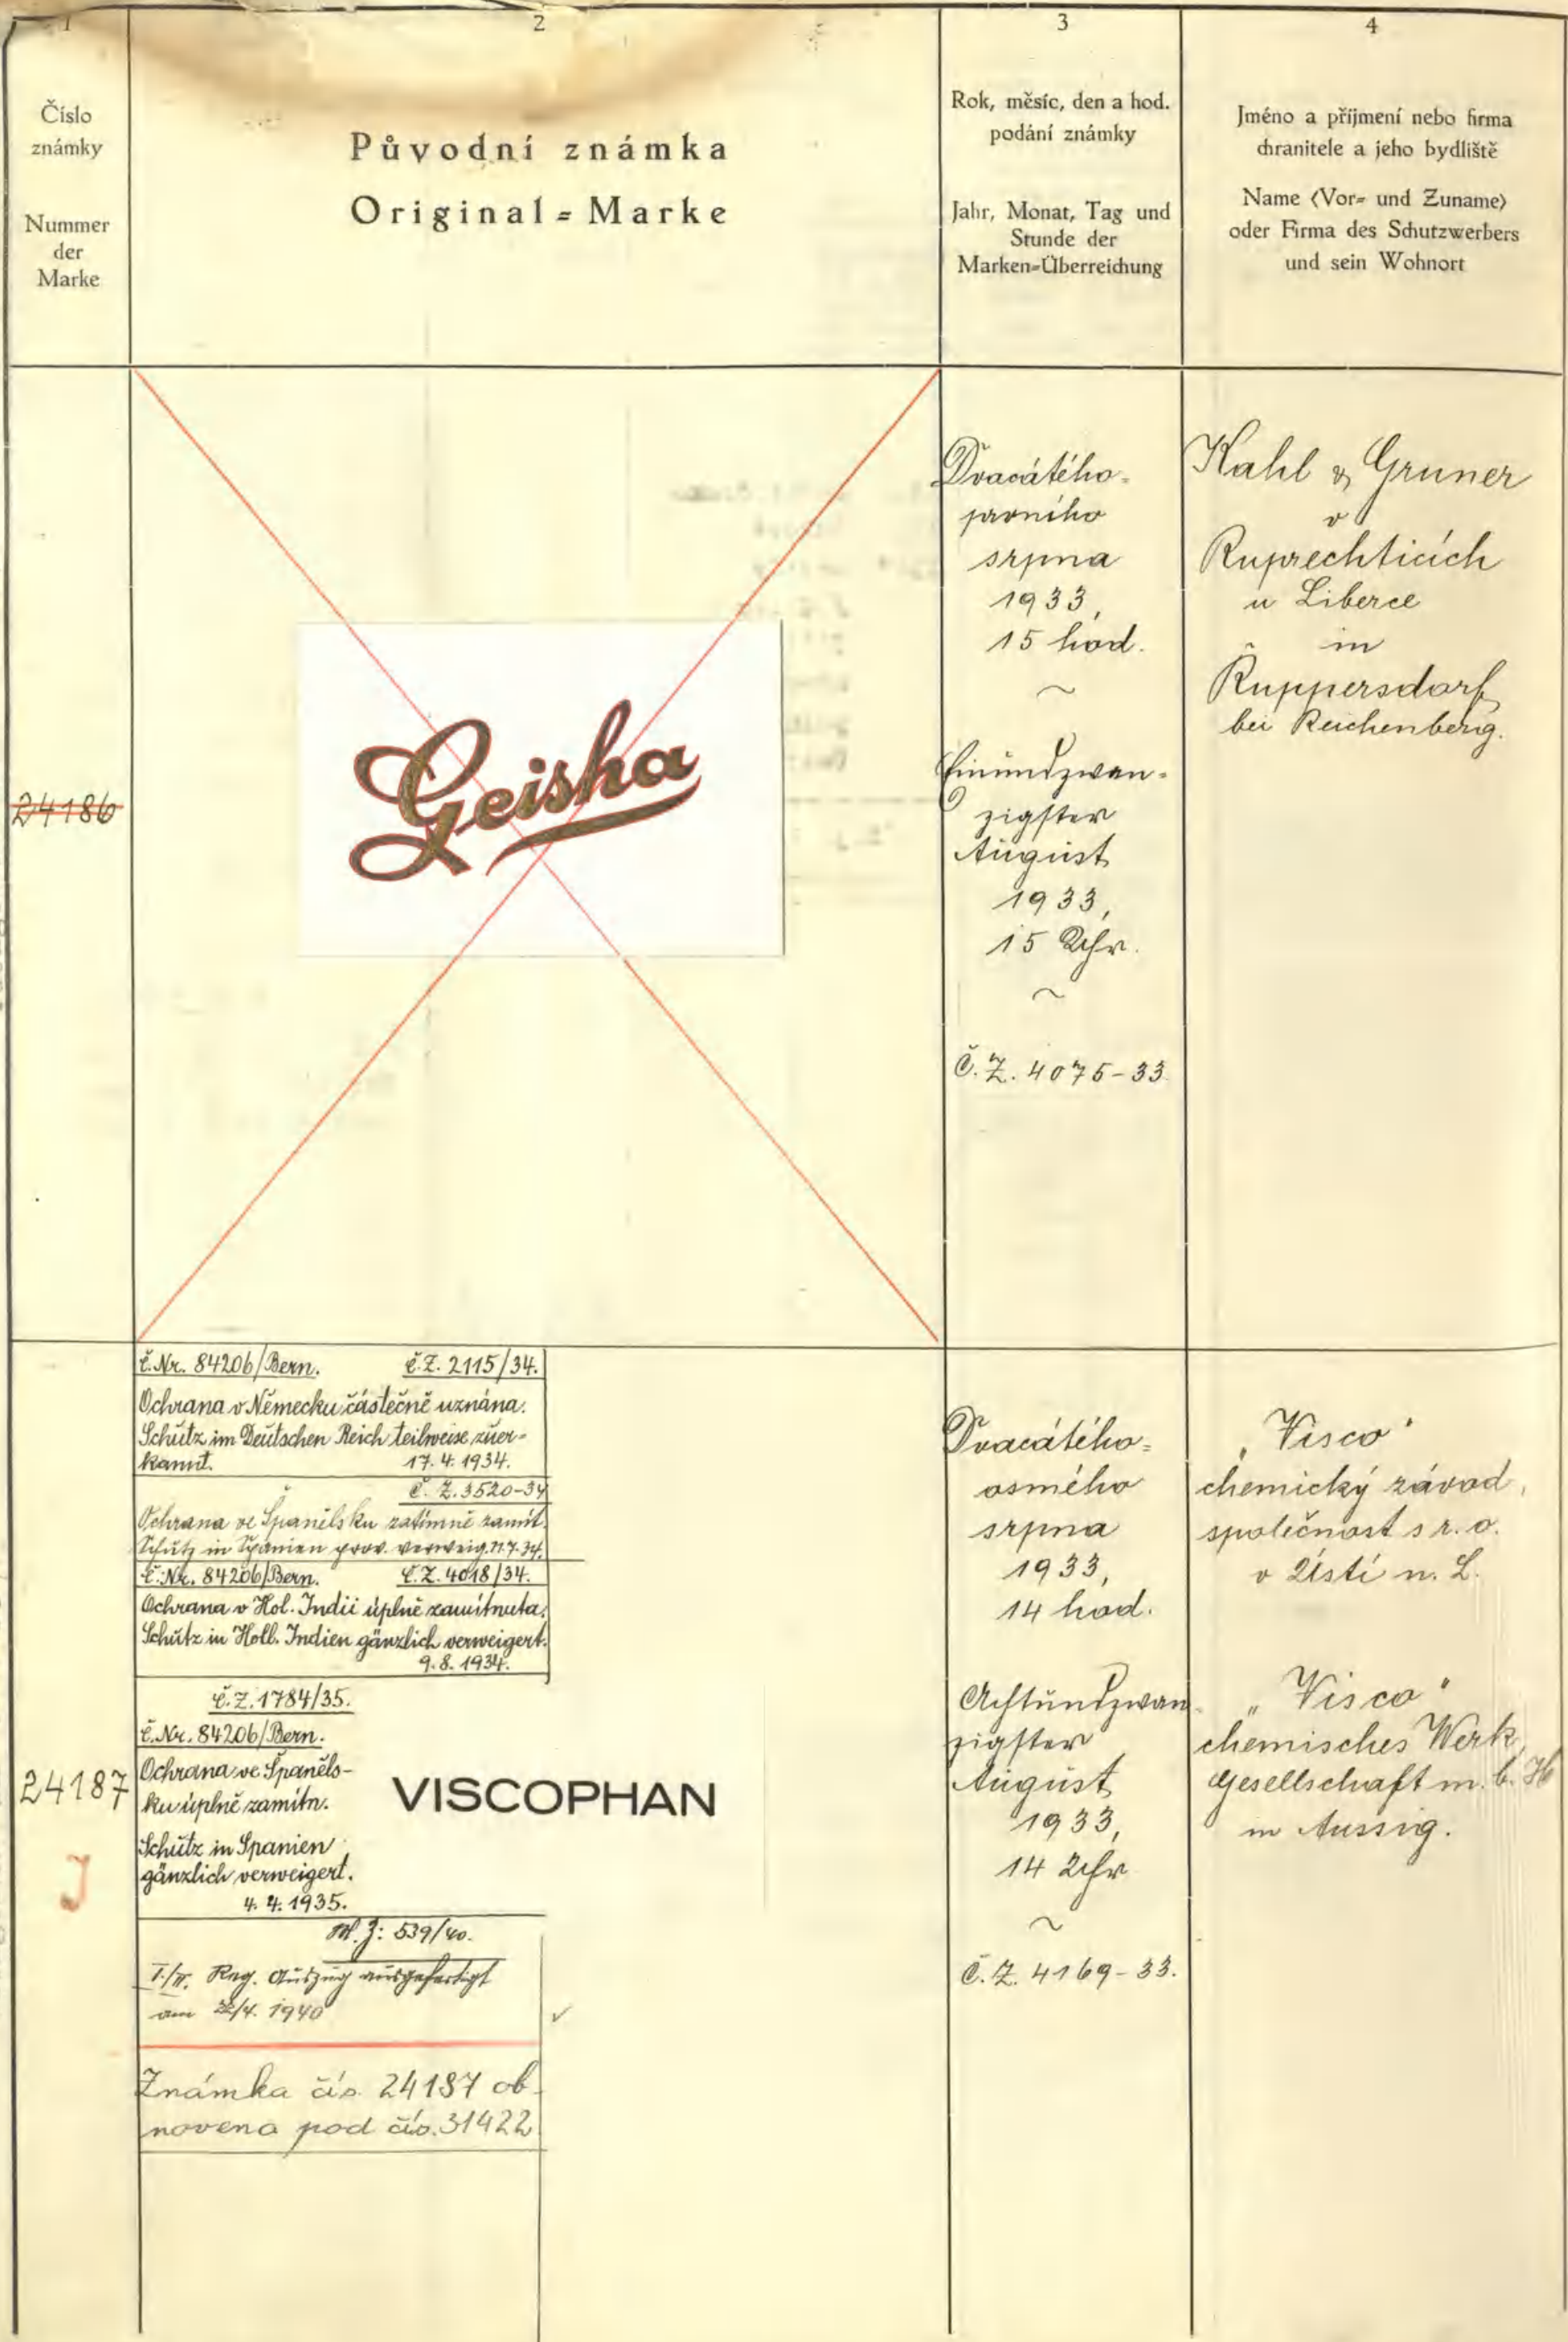 1
2
3
4
Číslo
známky
Nummer
der
Marke
Původní známka
Original=Marke
Rok, měsíc, den a hod.
podání známky
Jahr, Monat, Tag und
Stunde der
Marken=Überreichung
Jméno a příjmení nebo firma
chranitele a jeho bydliště
Name (Vor= und Zuname)
oder Firma des Schutzwerbers
und sein Wohnort
24186
Geisha
Dvacátého-
prvního
srpna
1933,
15 hod.
~
Einundzwan-
zigster
August
1933,
15 Uhr.
~
Č.Z. 4075-33
Kahl & Gruner
v
Ruprechticích
u Liberce
in
Ruppersdorf
bei Reichenberg.
24187
J
č.Nr. 84206/Bern. č.Z. 2115/34.
Ochrana v Německu částečně uznána.
Schütz im Deütschen Reich teilweise züer-
kannt. 17. 4. 1934.
Č. Z. 3520-34
Ochrana ve Španělsku zatímně zamít.
Schütz in Spanien prov. verweig. 11.7.34.
č.Nr. 84206/Bern. č.Z. 4018/34.
Ochrana v Hol. Indii úplně zamítnuta.
Schütz in Holl. Indien gänzlich verweigert.
9. 8. 1934.
č.Z. 1784/35.
č.Nr. 84206/Bern.
Ochrana ve Španěls-
ku úplně zamítn.
Schütz in Spanien
gänzlich verweigert.
4. 4. 1935.
M.Z: 539/40.
I./II. Reg. Auszug ausgefertigt
am 22/4. 1940
Známka čís. 24187 ob-
novena pod čís. 31422
VISCOPHAN
Dvacátého-
osmého
srpna
1933,
14 hod.
Achtundzwan-
zigster
August
1933,
14 Uhr
~
Č.Z. 4169-33.
„Visco"
chemický závod,
společnost s r. o.
v Ústí n. L.
„Visco"
chemisches Werk,
Gesellschaft m. b. H
in Aussig.